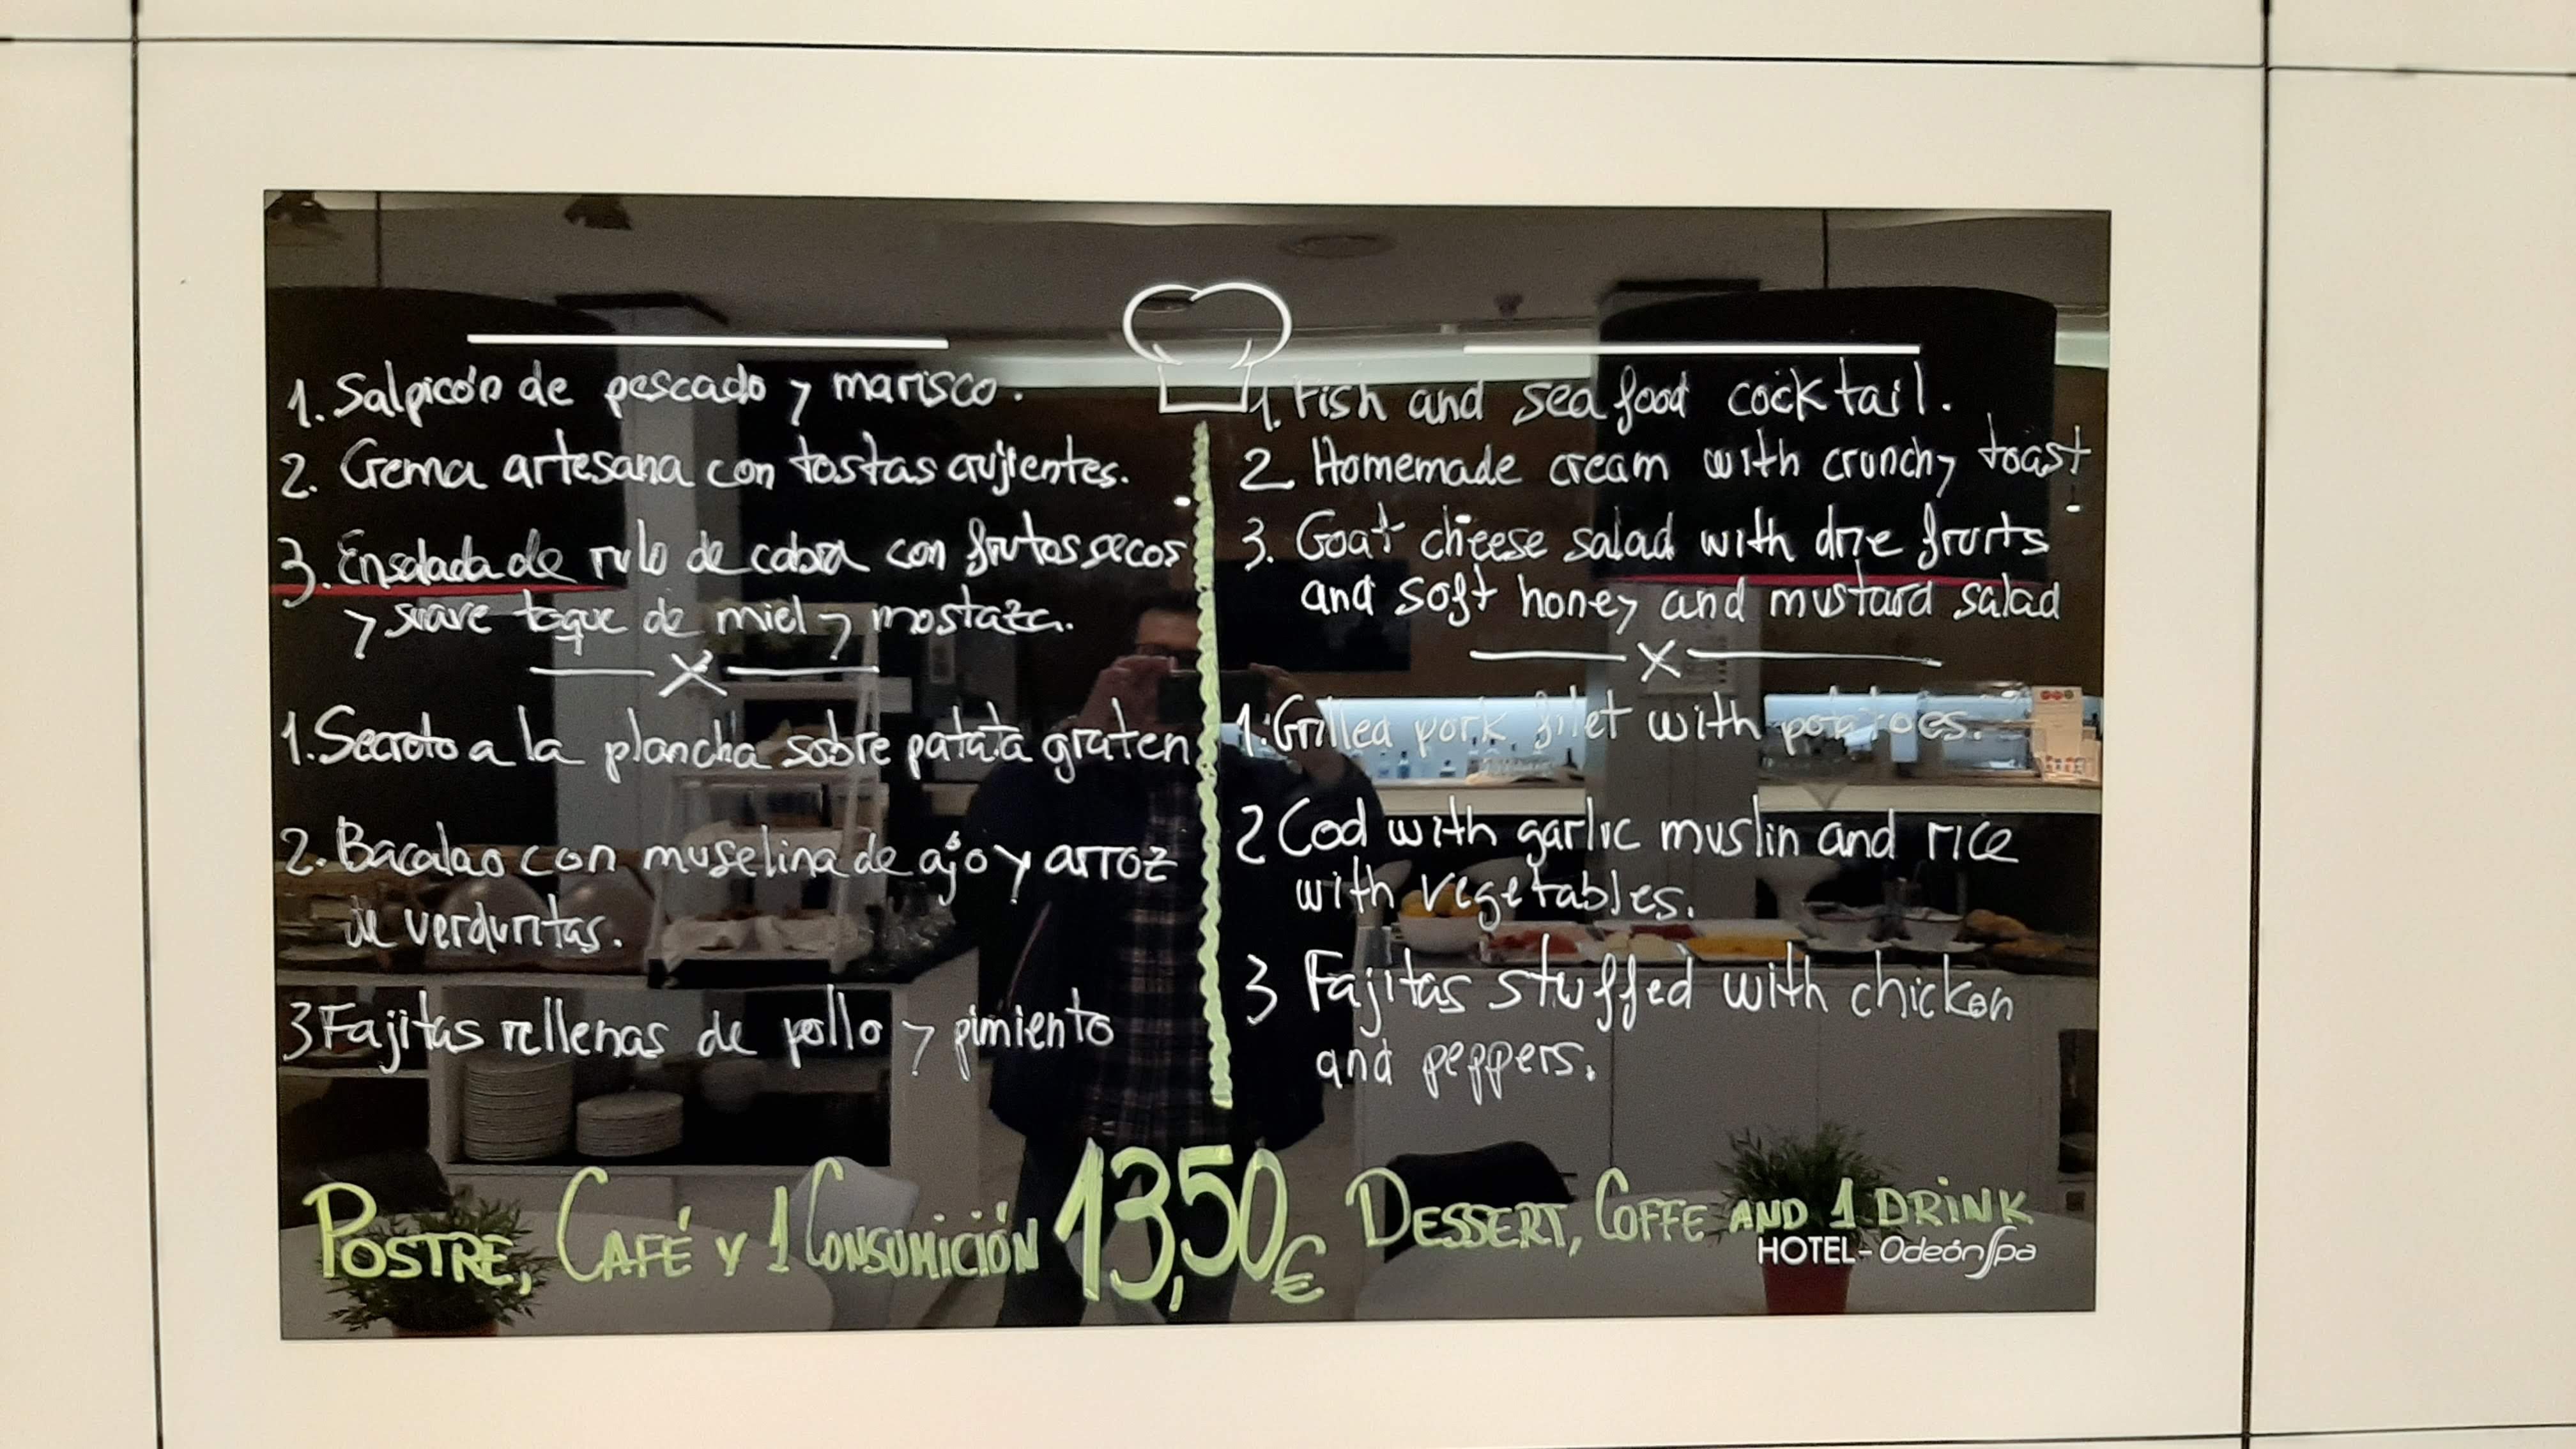 1. Salpicón de pescado y marisco.
2. Crema artesana con tostas crujientes.
3. Ensalada de rulo de cabra con frutos secos
y suave toque de miel y mostaza.
X
1. Secreto a la plancha sobre patata graten
2. Bacalao con muselina de ajo y arroz
de verduritas.
3 Fajitas rellenas de pollo y pimiento
1. Fish and seafood cocktail.
2 Homemade cream with crunchy toast
3. Goat cheese salad with drie fruits
and soft honey and mustard salad
X
1. Grilled pork filet with potatoes.
2 Cod with garlic muslin and rice
with vegetables.
3 Fajitas stuffed with chicken
and peppers.
POSTRE, CAFÉ Y 1 CONSUMICIÓN 13,50€ DESSERT, COFFE AND 1 DRINK
HOTEL-OdeónSpa